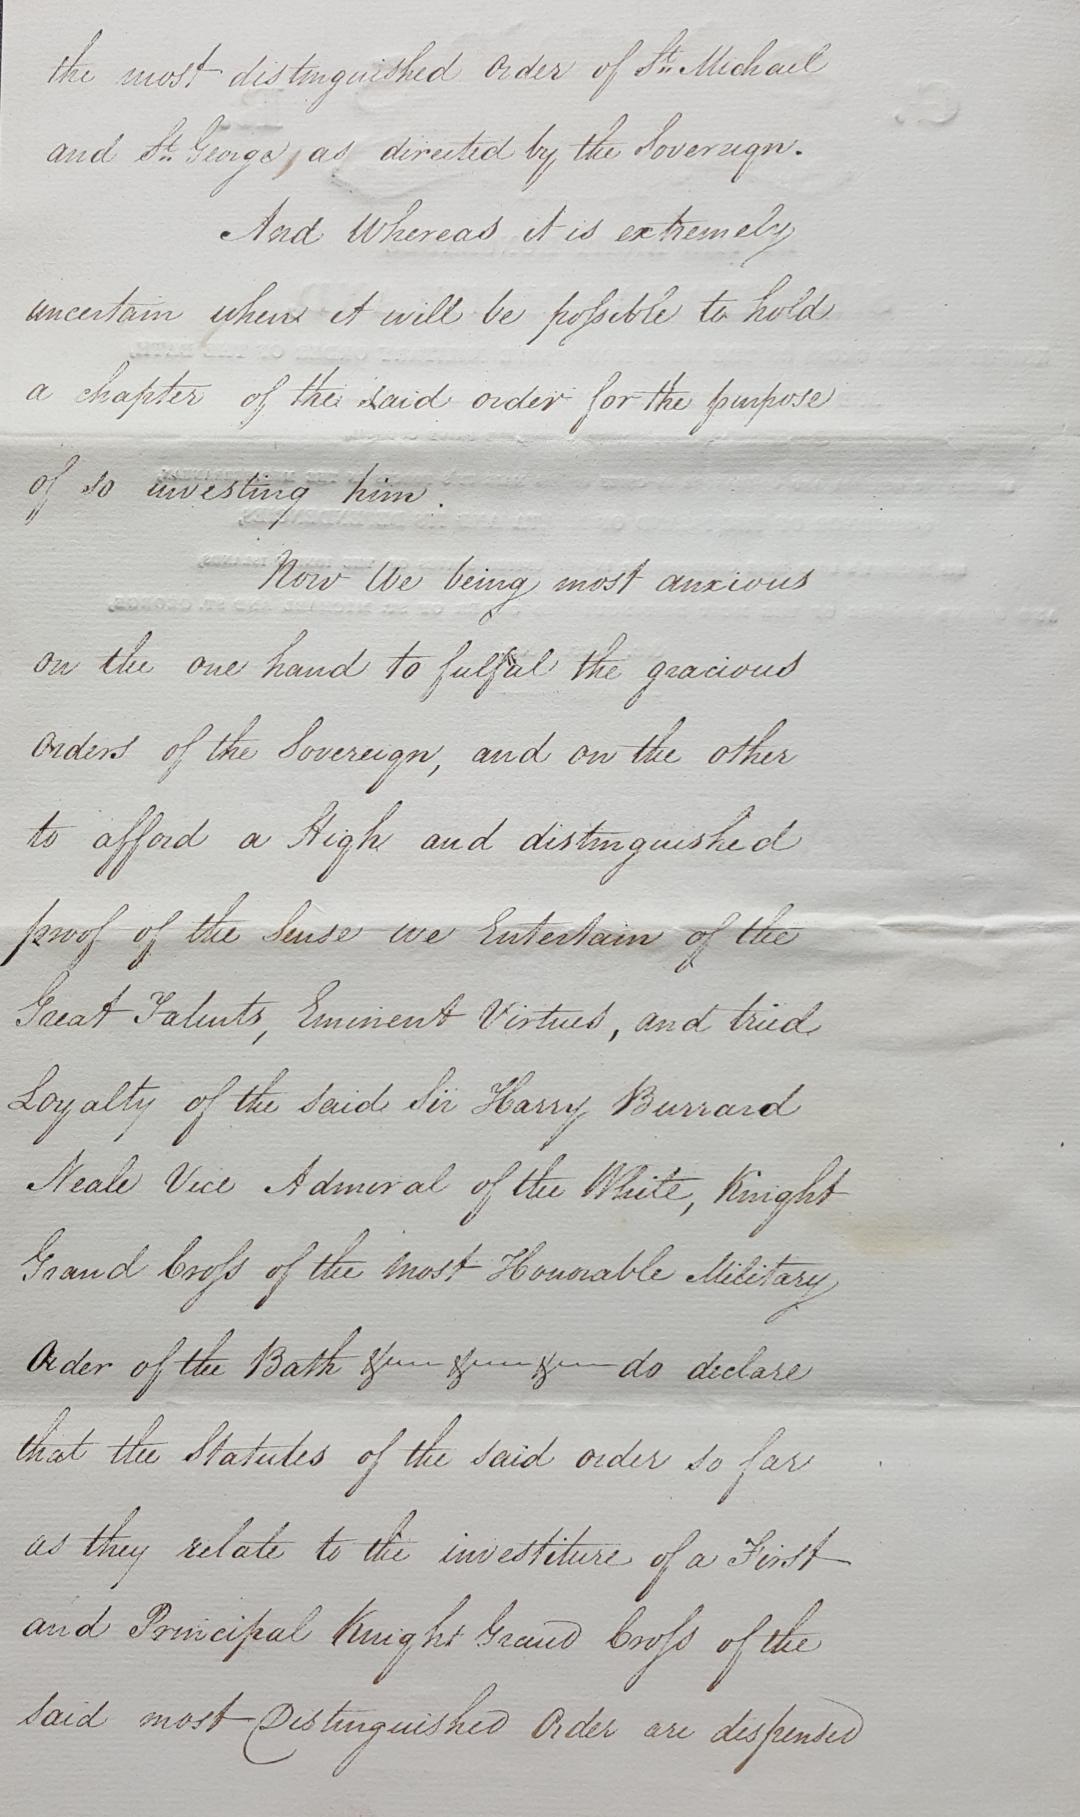 the most distinguished Order of St. Michael
and St. George, as directed by the Sovereign.
And Whereas it is extremely
uncertain when it will be possible to hold
a chapter of the said order for the purpose
of so investing him.
Now We being most anxious
on the one hand to fulfil the gracious
Orders of the Sovereign, and on the other
to afford a High and distinguished
proof of the Sense we Entertain of the
Great Talents, Eminent Virtues, and tried
Loyalty of the said Sir Harry Burrard
Neale Vice Admiral of the White, Knight
Grand Cross of the most Honorable Military
Order of the Bath &c &c &c do declare
that the Statutes of the said order so far
as they relate to the investiture of a First
and Principal Knight Grand Cross of the
said most Distinguished Order are dispensed